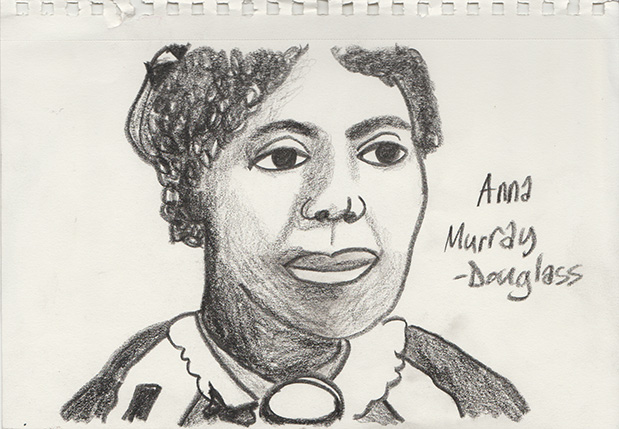 Anna
Murray
-Douglass